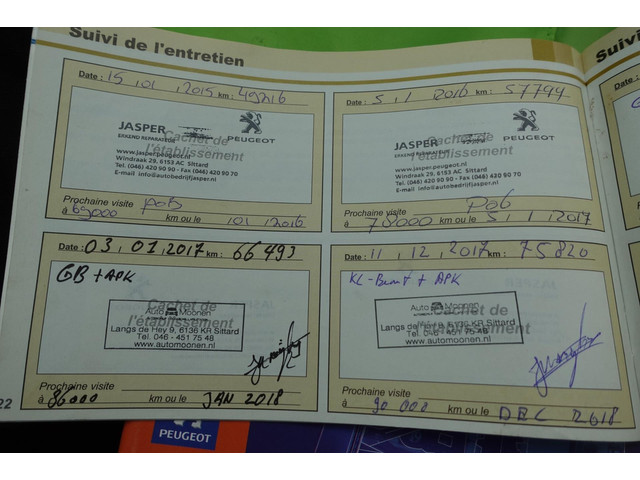 Suivi de l'entretien
Suivi
Date : 15 , 01 , 2015 km : 49216
JASPER
ERKEND REPARATEUR
PEUGEOT
Cachet de
l'établissement
www.jasperpeugeot.nl
Windraak 29, 6153 AC Sittard
Tel. (046) 420 90 90 - Fax (046) 420 90 70
E-mail info@autobedrijfjasper.nl
Prochaine visite
à 69000 km ou le 01 / 2016
Date : 5 , 1 / 2016 km : 57794
JASPER
ERKEND REPARATEUR
PEUGEOT
Cachet de
l'établissement
www.jasperpeugeot.nl
Windraak 29, 6153 AC Sittard
Tel. (046) 420 90 90 - Fax (046) 420 90 70
E-mail info@autobedrijfjasper.nl
Prochaine visite
à km ou le 5 / 1 / 2017
Date : 03 , 01 , 2017 km : 66493
GB + APK
Cachet de
l'établissement
Auto Moonen
Langs de Hey 9, 6136 KR Sittard
Tel. 046 - 451 75 48
www.automoonen.nl
Prochaine visite
à 86000 km ou le JAN 2018
Date : 11 , 12 , 2017 km : 75820
KL-Beurt + APK
Cachet de
l'établissement
Auto Moonen
Langs de Hey 9, 6136 KR Sittard
Tel. 046 - 451 75 48
www.automoonen.nl
Prochaine visite
à 90 000 km ou le DEC 2018
22
PEUGEOT